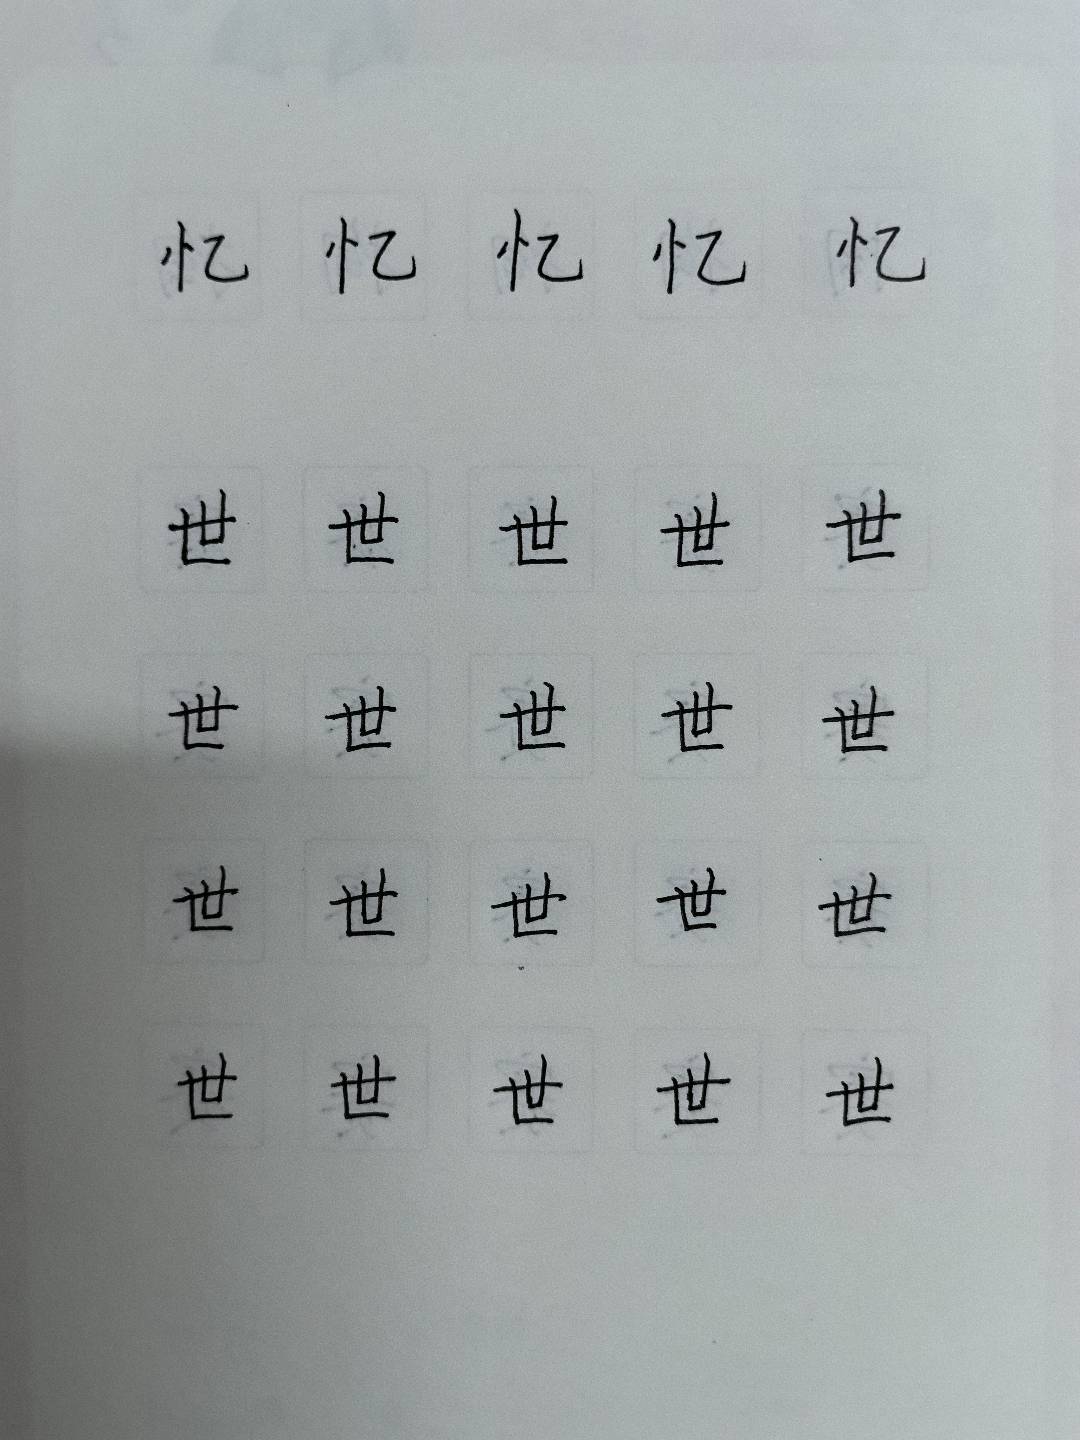 忆 忆 忆 忆 忆
世 世 世 世 世
世 世 世 世 世
世 世 世 世 世
世 世 世 世 世